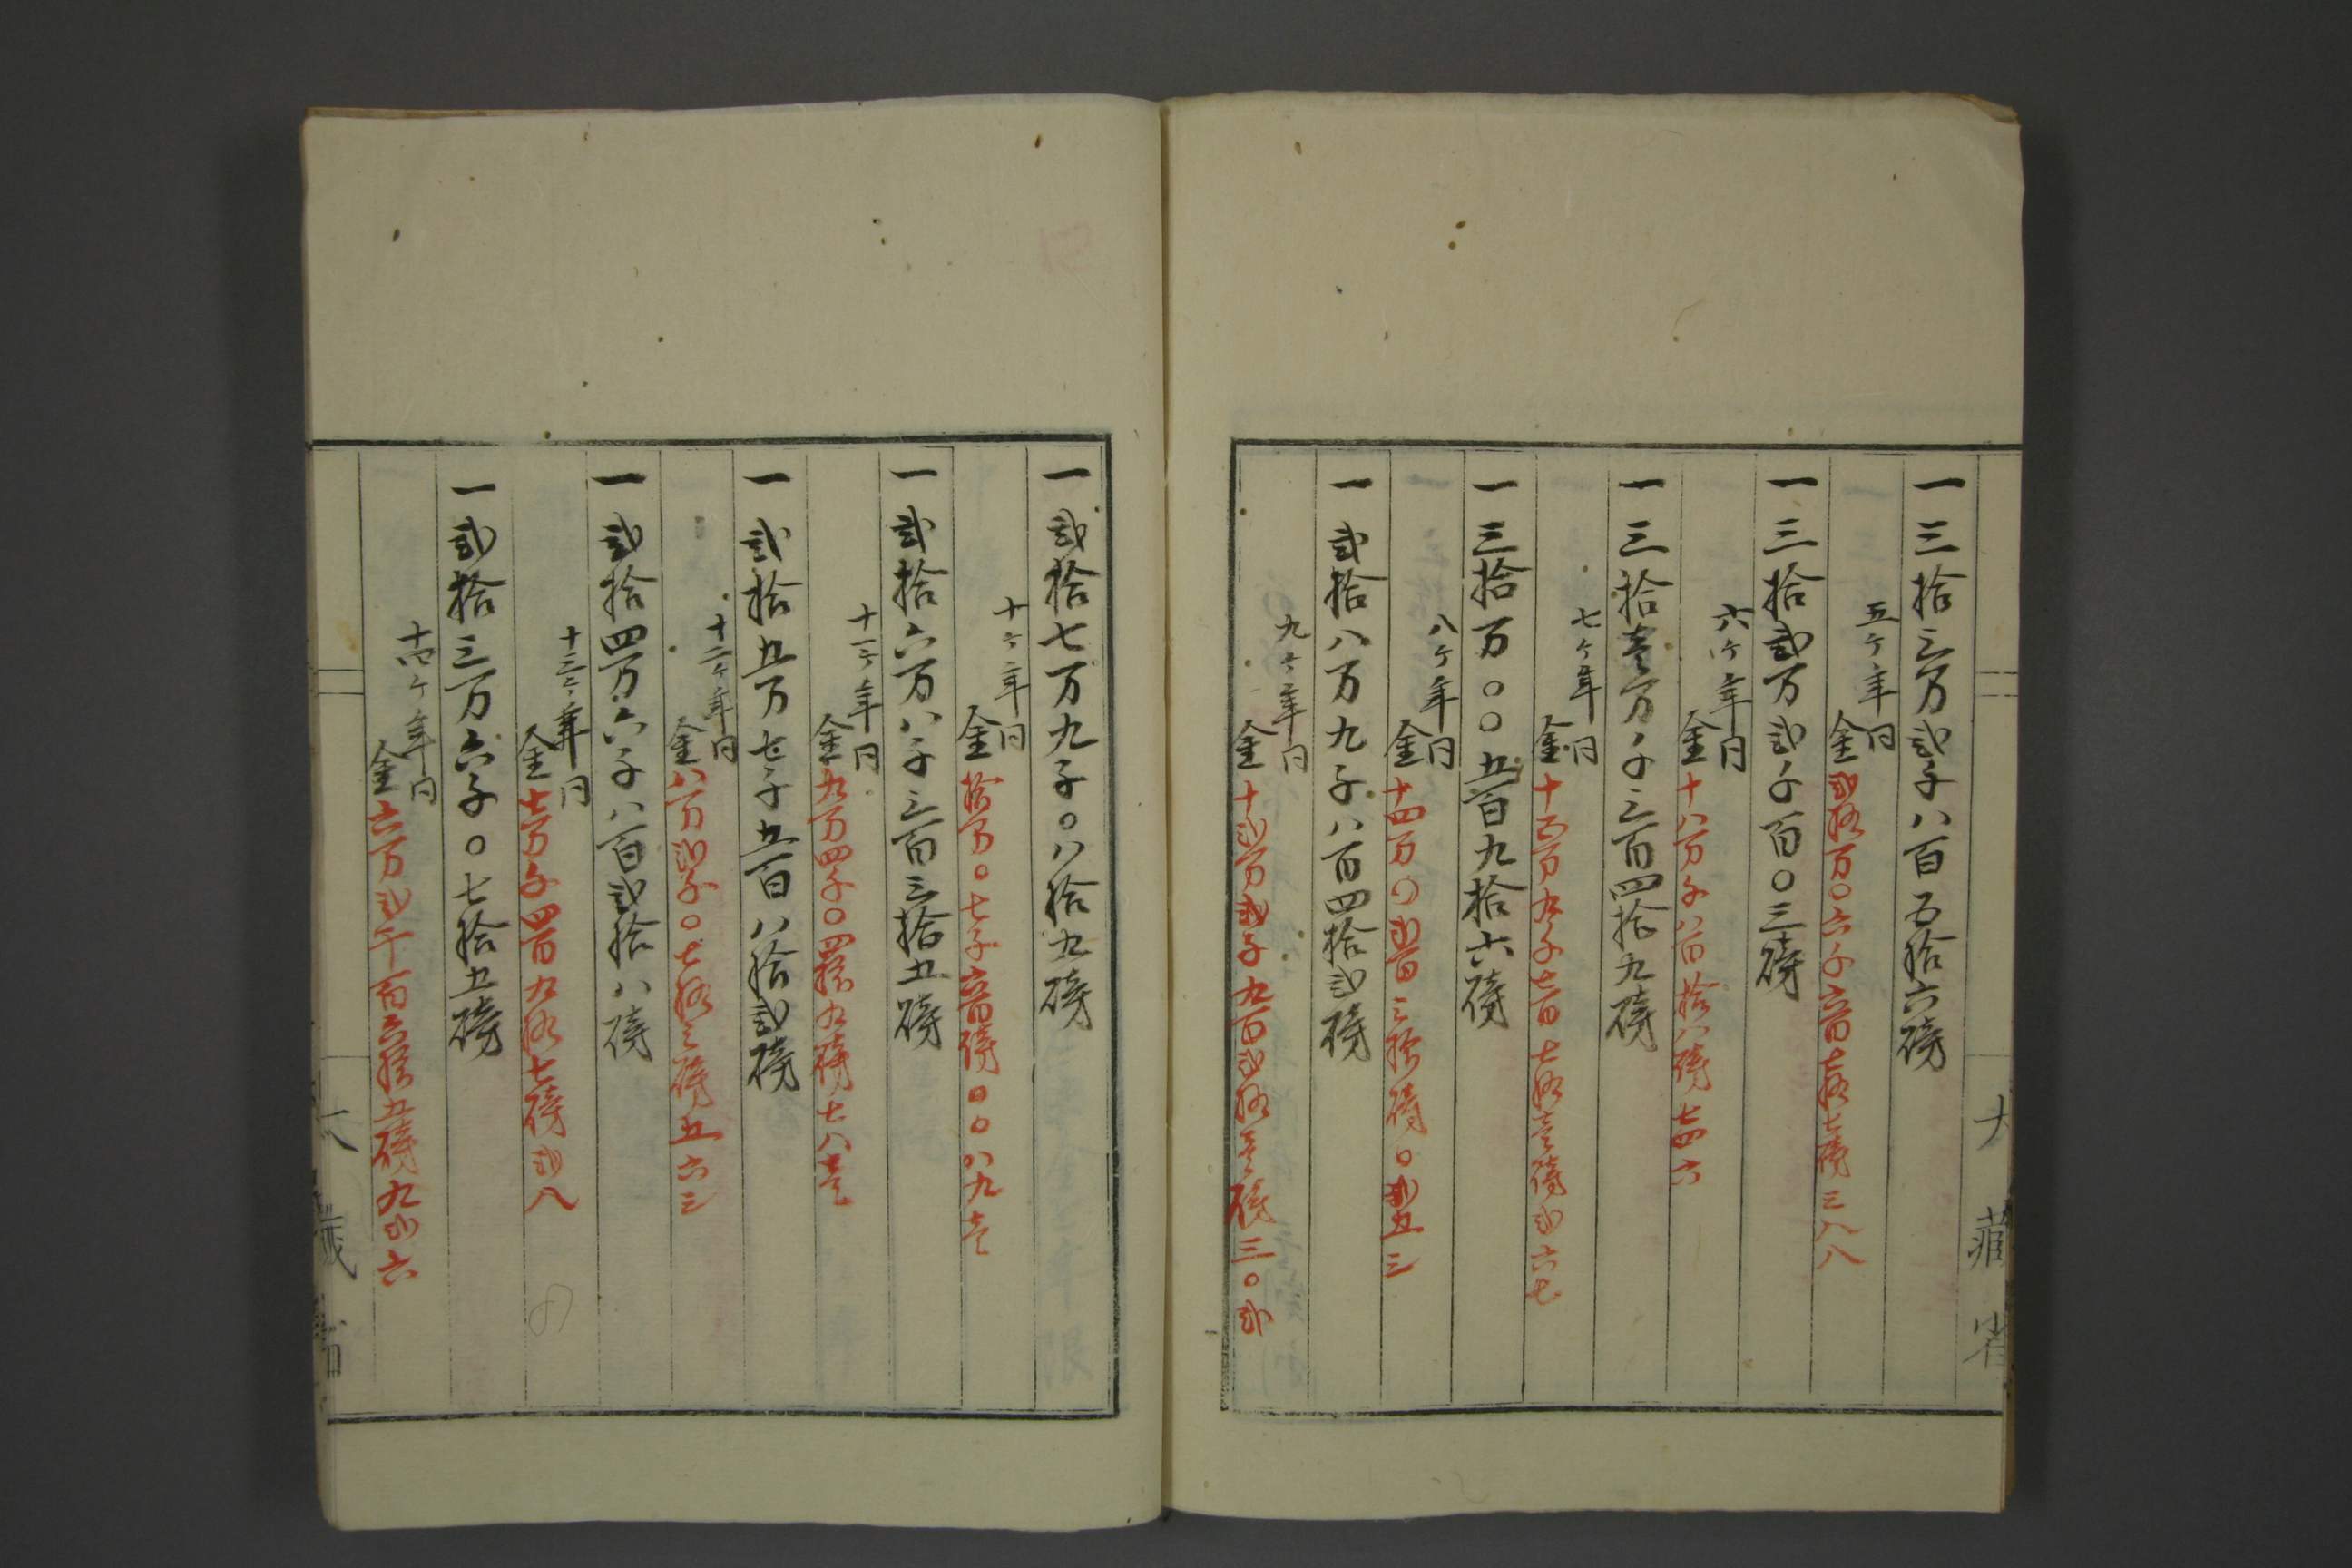 一三拾三万弐千八百五拾六磅
五ケ年目
金弐拾万〇六千六百七拾七磅三八八
一三拾弐万弐千百〇三磅
六ケ年目
金十八万千八百拾八磅七四六
一三拾壱万千三百四拾九磅
七ケ年目
金十五万九千七百七拾壱磅弐六七
一三拾万〇〇五百九拾六磅
八ケ年目
金十四万〇弐百三拾磅〇弐五三
一弐拾八万九千八百四拾弐磅
九ケ年目
金十弐万弐千九百弐拾壱磅三〇弐
大蔵省
一弐拾七万九千〇八拾九磅
十ケ年目
金拾万〇七千六百磅〇〇八九壱
一弐拾六万八千三百三拾五磅
十一ケ年目
金九万四千〇四拾九磅七八壱
一弐拾五万七千五百八拾弐磅
十二ケ年目
金八万弐千〇七拾三磅五六三
一弐拾四万六千八百弐拾八磅
十三ケ年目
金七万千四百九拾七磅弐八
一弐拾三万六千〇七拾五磅
十四ケ年目
金六万弐千百五拾五磅九弐六
大蔵省